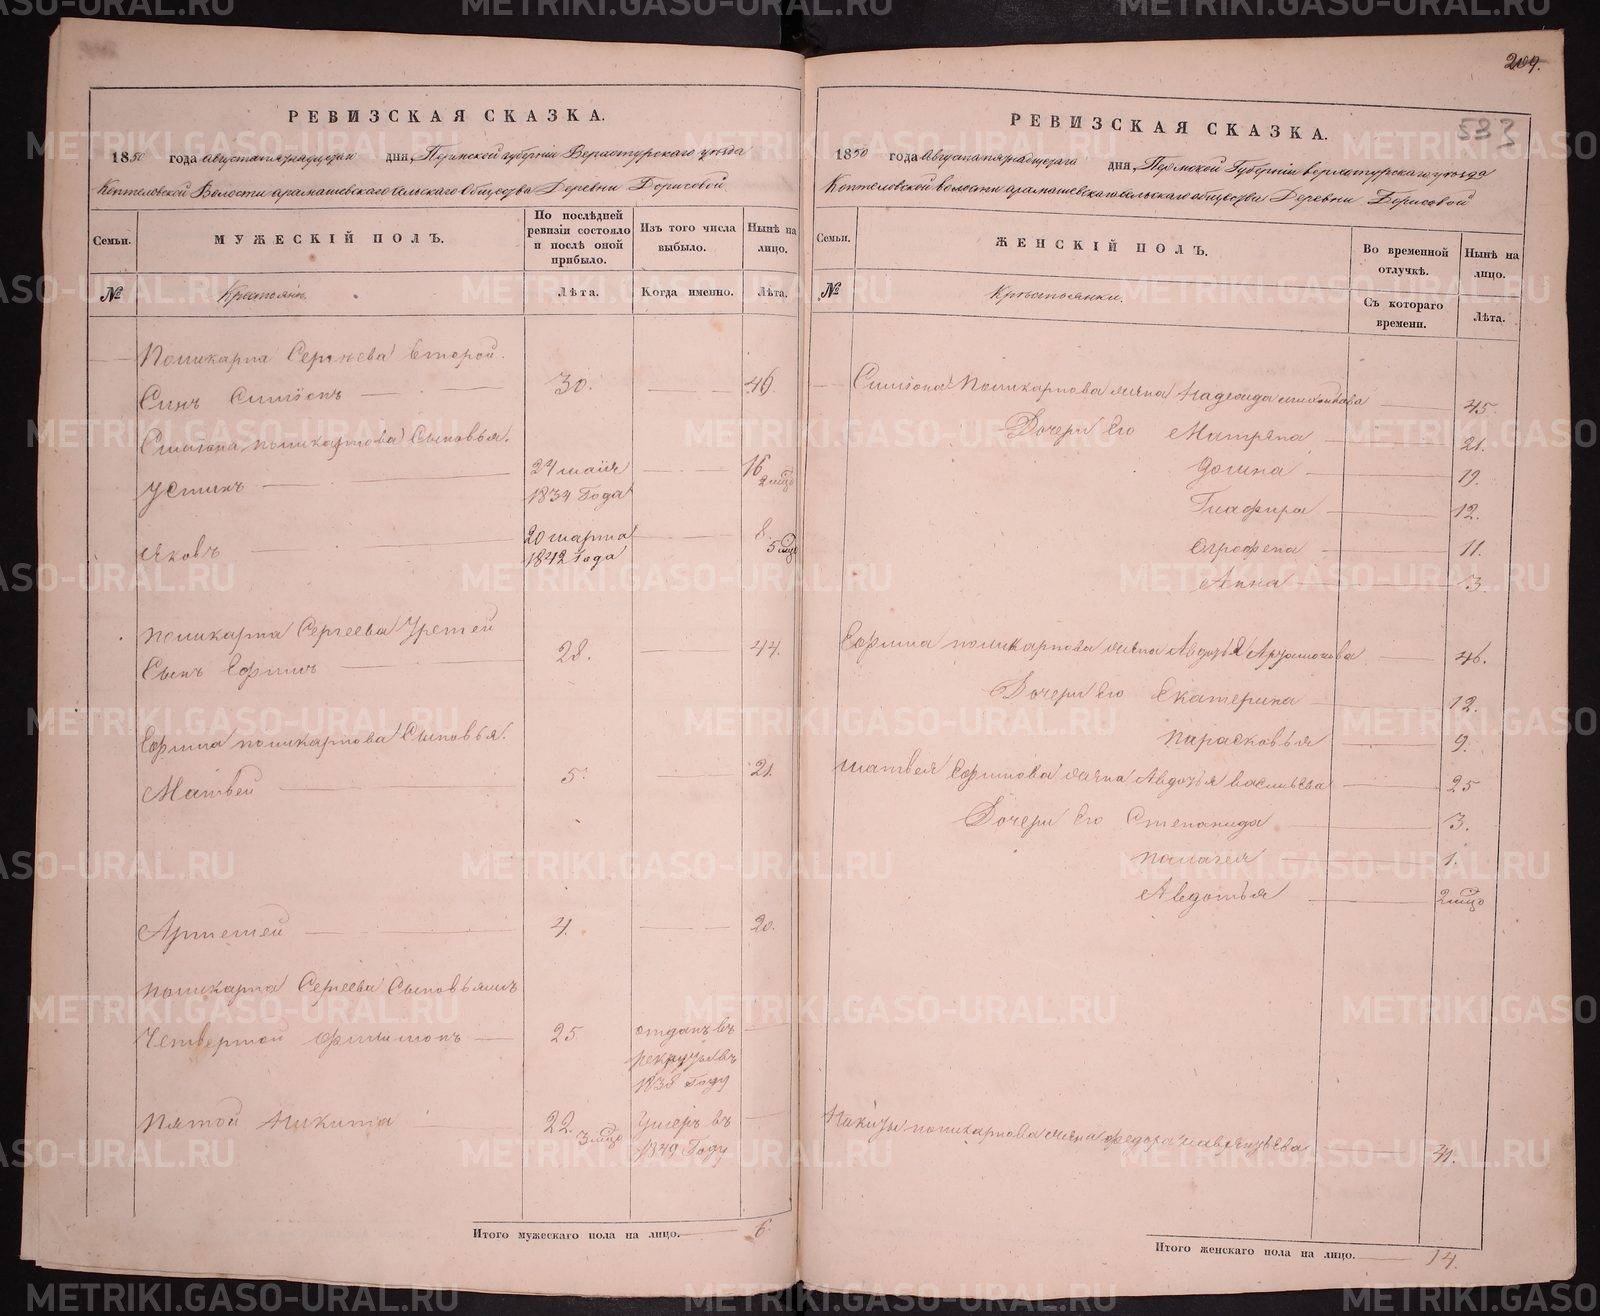 209.
533
РЕВИЗСКАЯ СКАЗКА.
1850 года Августа пятнадцатаго дня, Пермской губернии Верхотурскаго уезда
Коптеловской Волости Арамашевскаго сельскаго Общества Деревни Борисовой
Семьи. МУЖЕСКІЙ ПОЛЪ. По послѣдней ревизіи состояло и послѣ оной прибыло. Изъ того числа выбыло. Нынѣ на лицо.
№ Крестьяне. Лѣта. Когда именно. Лѣта.
Поликарпа Сергѣева второй
Сынъ Симіонъ 30. 46.
Симіона Поликарпова Сыновья.
Устинъ 24 маія 1834 года 16
Яковъ 20 марта 1842 года 8. 5
Поликарпа Сергеева Третей
Сынъ Ефимъ 28. 44.
Ефима Поликарпова Сыновья.
Матвей 5. 21.
Артемей 4. 20.
Поликарпа Сергеева Сыновьямъ
Четвертой Филимонъ 25 отданъ въ рекруты въ 1838 году
Пятой Никита 22. Умеръ въ 1849 Году
Итого мужескаго пола на лицо. 6.
РЕВИЗСКАЯ СКАЗКА.
1850 года Августа пятнадцатаго дня, Пермской Губерніи верхотурскаго уезда
Коптеловской волости арамашевскаго сельскаго общества Деревни Борисовой
Семьи. ЖЕНСКІЙ ПОЛЪ. Во временной отлучкѣ. Нынѣ на лицо.
№ Крестьянки. Съ котораго времени. Лѣта.
Симіона Поликарпова жена Надежда 45.
Дочери его Матрена 21.
19.
Глафира 12.
Агрофена 11.
Анна 3
Ефима поликарпова жена Авдотья 46.
Дочери его Екатерина 12.
Парасковья 9.
Матвея Ефимова жена Авдотья васильева 25
Дочери его Степанида 3.
Палагея 1.
Авдотья 2
Никиты поликарпова жена федора 41.
Итого женскаго пола на лицо. 14.
METRIKI.GASO-URAL.RU